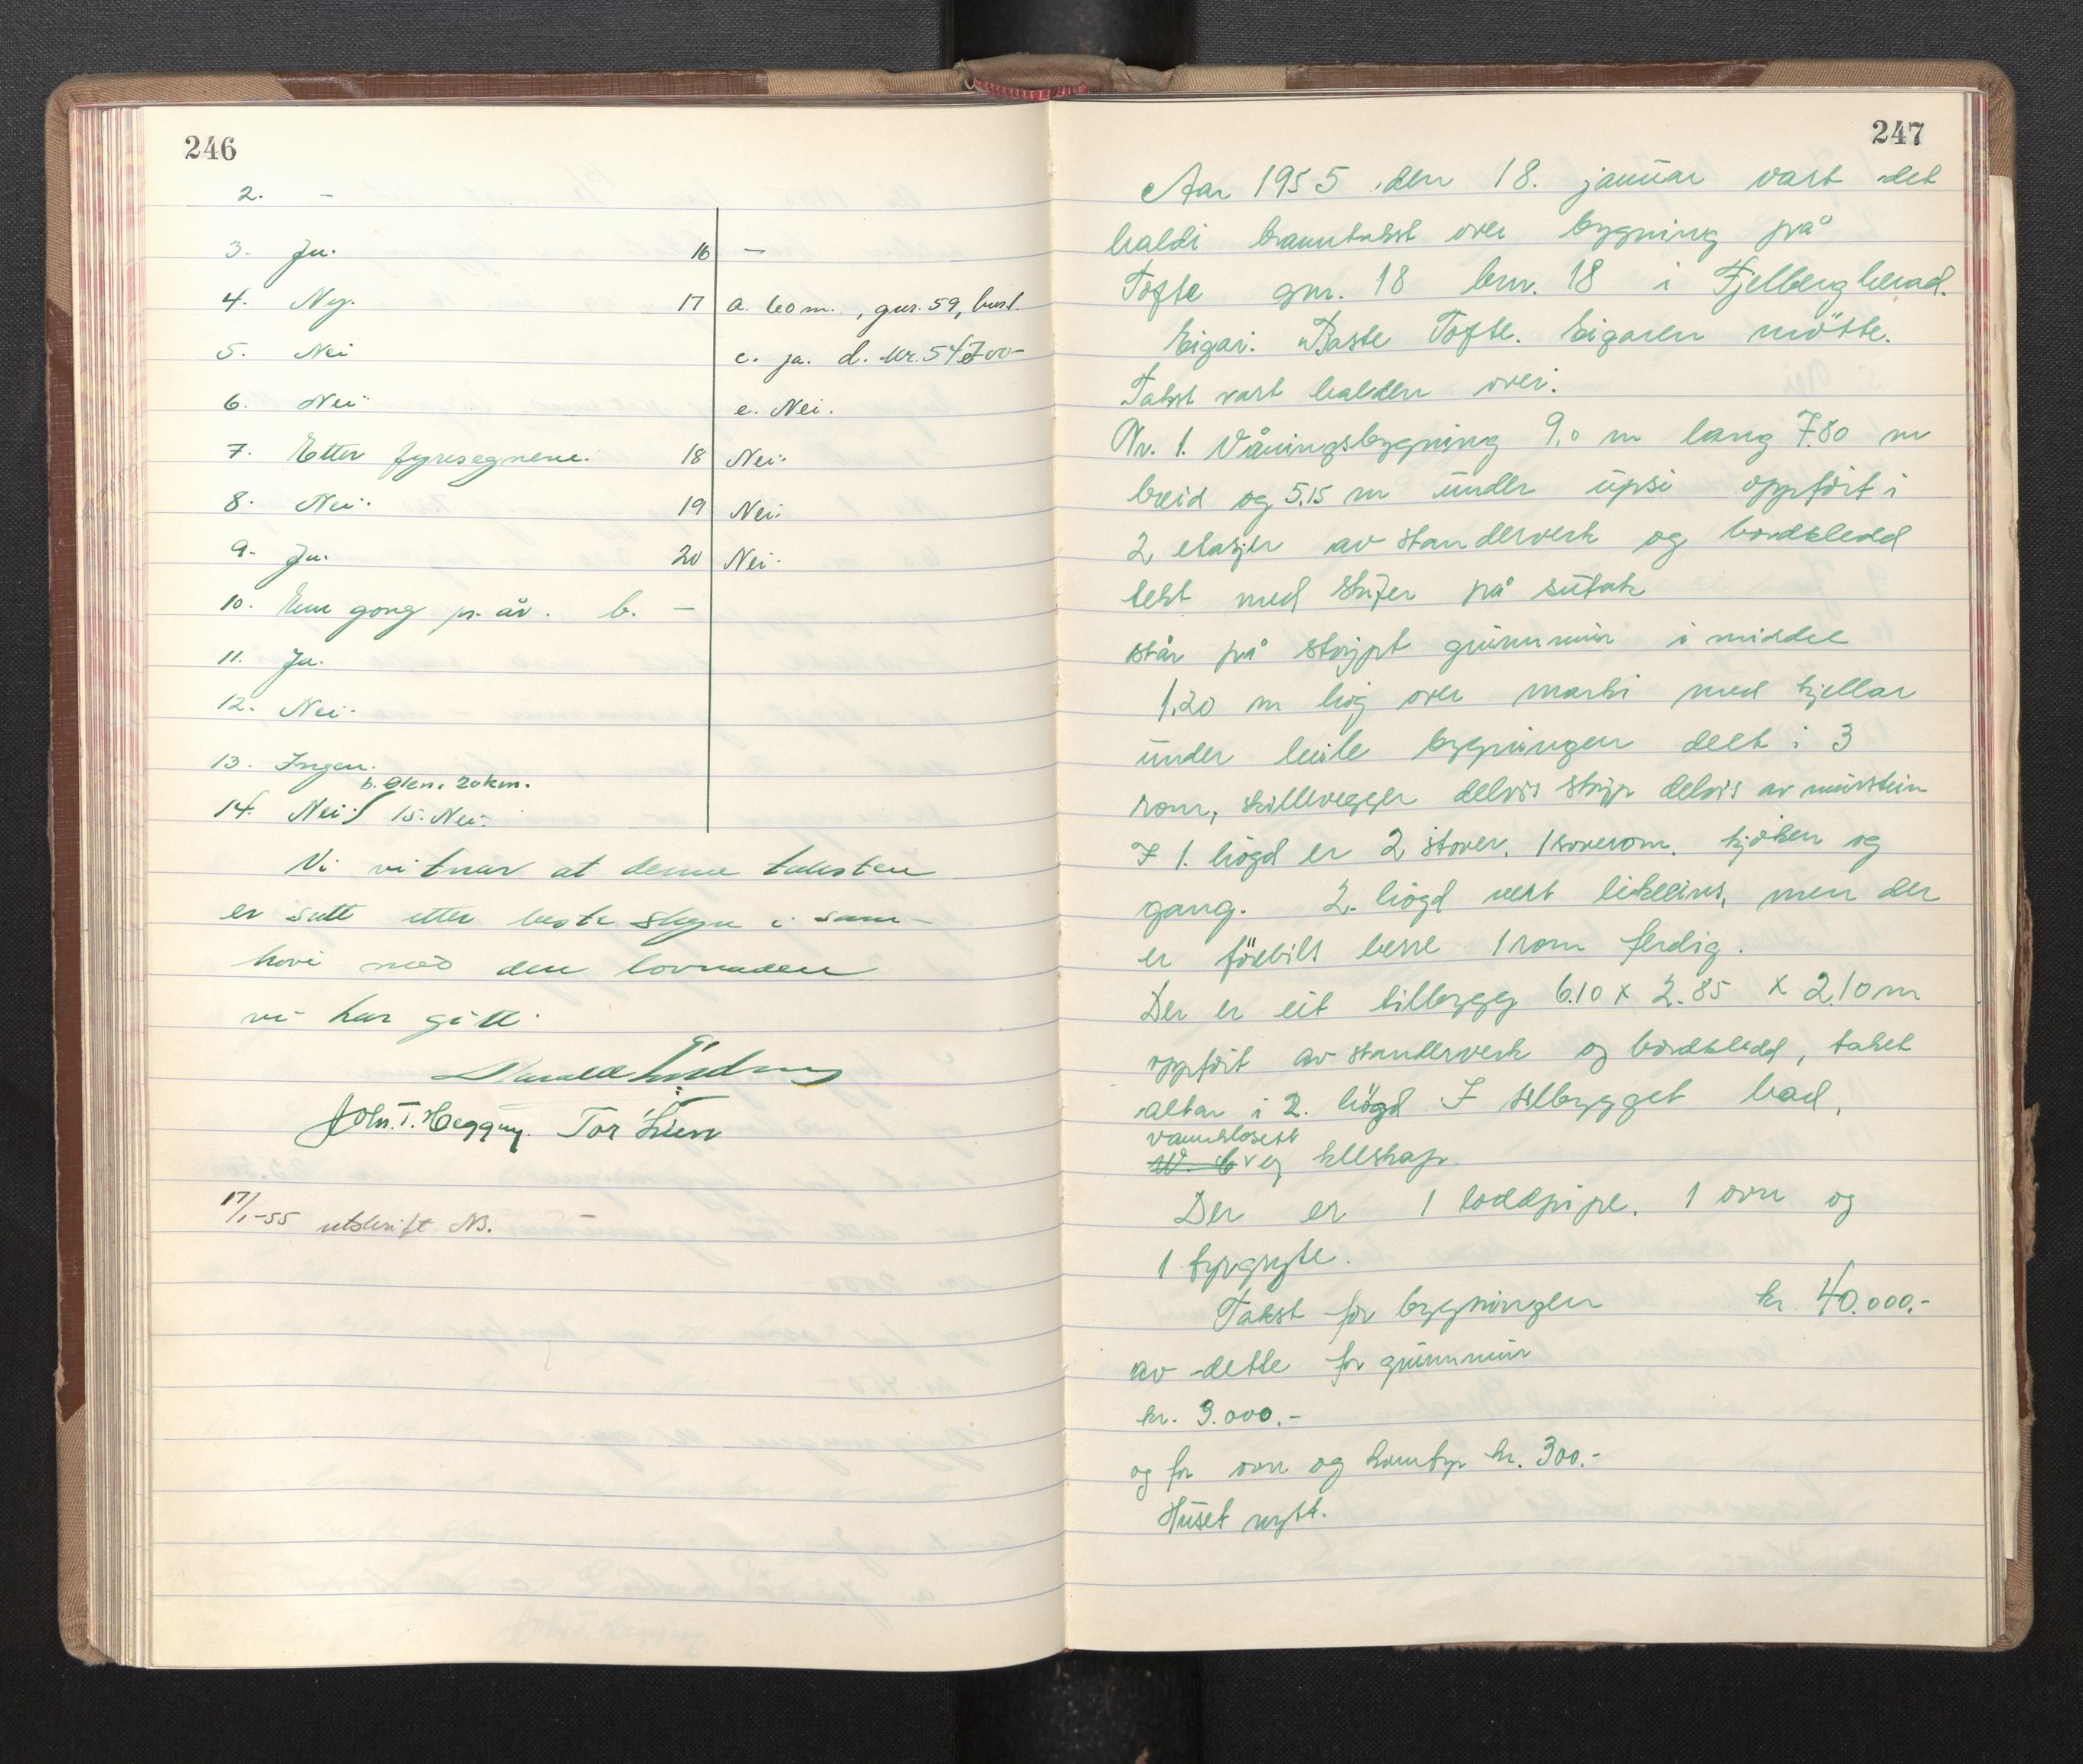 246
2. -
3. Ja. 16 -
4. Ny. 17 a. 60 m., gnr. 59, bust.
5. Nei c. ja. d. kr. 54700-
6. Nei e. Nei.
7. Etter fyresegnene. 18 Nei.
8. Nei. 19 Nei.
9. Ja. 20 Nei.
10. Ein gong pr. år. b. -
11. Ja.
12. Nei.
13. Ingen.
b. 20 km.
14. Nei. 15. Nei.
Vi vitnar at denne taksten
er sett etter beste skyn i sam-
høve med den lovnaden
vi har gitt.
Harald
John. T. Heggøy. Tor Lien
17/1-55 utskrift NB.
247
Aar 1955 den 18. januar vart det
haldi branntakst over bygning på
Tofte gnr. 18 bnr. 18 i Fjelberg herad.
Eigar: Baste Tofte. Eigaren møtte.
Takst vart halden over:
Nr. 1. Våningsbygning 9,0 m lang 7.80 m
breid og 5,15 m under upsi oppført i
2 etasjer av standerverk og bordkledd
tekt med skifer på sutak
står på støypt grunnmur i middel
1,20 m høg over marki med kjellar
under heile bygningen delt i 3
rom, skillevegger delvis støyp delvis av murstein
I 1. høgd er 2 stover, 1 soverom, kjøken og
gang. 2. høgd vert likeeins, men der
er förebils berre 1 rom ferdig.
Der er eit tilbygg 6.10 x 2.85 x 2.10 m
oppført av standerverk og bordkledd, taket
altan i 2. høgd. I tilbygget bad,
vannklosett
og kleskap.
Der er 1 loddpipe, 1 ovn og
1 fyrgryte.
Takst for bygningen kr. 40.000.-
av dette for grunnmur
kr. 3.000.-
og for ovn og komfyr kr. 300.-
Huset nytt.